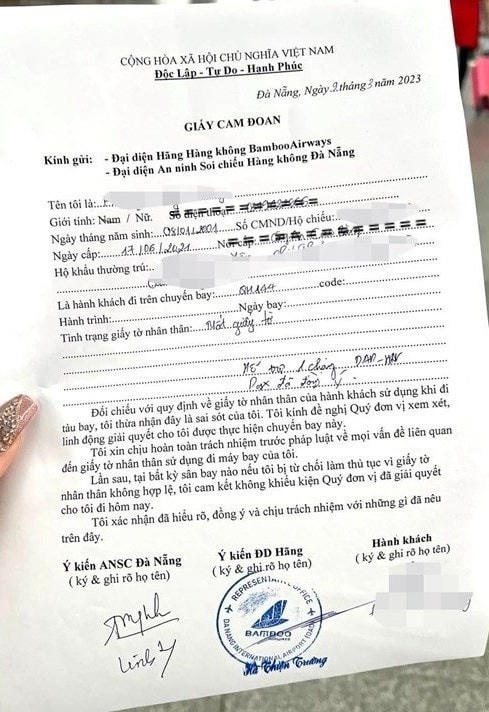 CỘNG HÒA XÃ HỘI CHỦ NGHĨA VIỆT NAM
Độc Lập - Tự Do - Hạnh Phúc
Đà Nẵng, Ngày 9 tháng 3 năm 2023
GIẤY CAM ĐOAN
Kính gửi: - Đại diện Hãng Hàng không BambooAirways
- Đại diện An ninh Soi chiếu Hàng không Đà Nẵng
Tên tôi là:
Giới tính: Nam / Nữ. Số điện thoại:
Ngày tháng năm sinh: 08/01/2001 Số CMND/Hộ chiếu:
Ngày cấp: 17/06/2021 Nơi cấp
Hộ khẩu thường trú:
Là hành khách đi trên chuyến bay: QH144 code:
Hành trình: Ngày bay:
Tình trạng giấy tờ nhân thân: Mất giấy tờ
1 chặng DAD-HAN
Pax đã đồng ý
Đối chiếu với quy định về giấy tờ nhân thân của hành khách sử dụng khi đi
tàu bay, tôi thừa nhận đây là sai sót của tôi. Tôi kính đề nghị Quý đơn vị xem xét,
linh động giải quyết cho tôi được thực hiện chuyến bay này.
Tôi xin chịu hoàn toàn trách nhiệm trước pháp luật về mọi vấn đề liên quan
đến giấy tờ nhân thân sử dụng đi máy bay của tôi.
Lần sau, tại bất kỳ sân bay nào nếu tôi bị từ chối làm thủ tục vì giấy tờ
nhân thân không hợp lệ, tôi cam kết không khiếu kiện Quý đơn vị đã giải quyết
cho tôi đi hôm nay.
Tôi xác nhận đã hiểu rõ, đồng ý và chịu trách nhiệm với những gì đã nêu
trên đây.
Ý kiến ANSC Đà Nẵng Ý kiến ĐD Hãng Hành khách
( ký & ghi rõ họ tên) ( ký & ghi rõ họ tên) ( ký & ghi rõ họ tên)
REPRESENTATIVE OFFICE
BAMBOO
AIRWAYS
DA NANG INTERNATIONAL AIRPORT (DAD)
Linh
Hà Thiện Trường